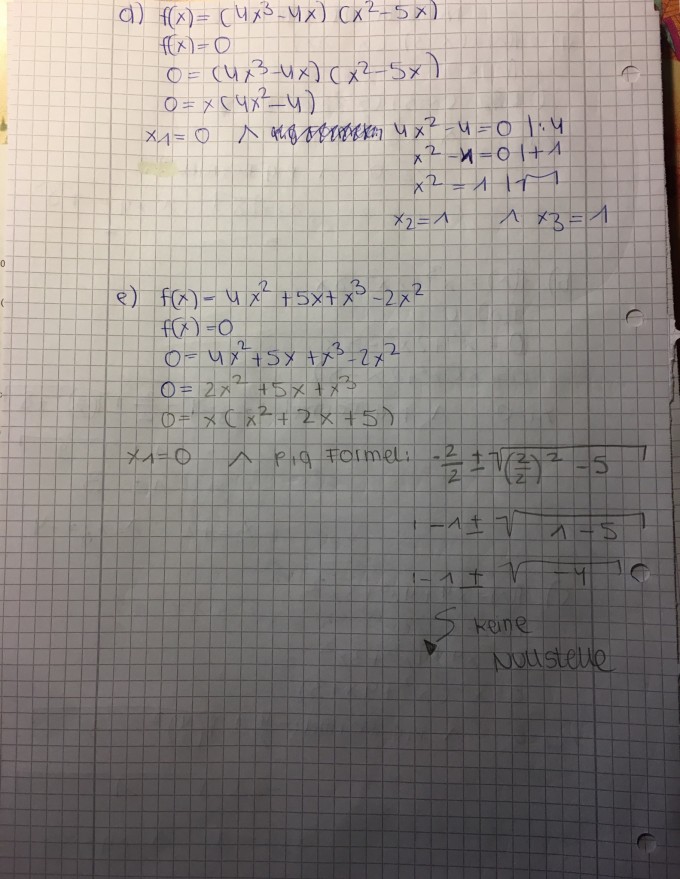 d) f(x) = (4x³-4x) (x²-5x)
f(x) = 0
0 = (4x³-4x) (x²-5x)
0 = x(4x²-4)
x1 = 0 ∧ 4x²-4=0 |:4
x²-1=0 |+1
x² = 1 |√
x2 = 1 ∧ x3 = 1
e) f(x) = 4x² +5x+x³-2x²
f(x)=0
0=4x²+5x+x³-2x²
0= 2x² +5x+x³
0= x(x²+2x+5)
x1=0 ∧ p,q Formel: -2/2 ± √(2/2)² -5
-1 ± √1-5
-1 ± √-4
keine
Nullstelle